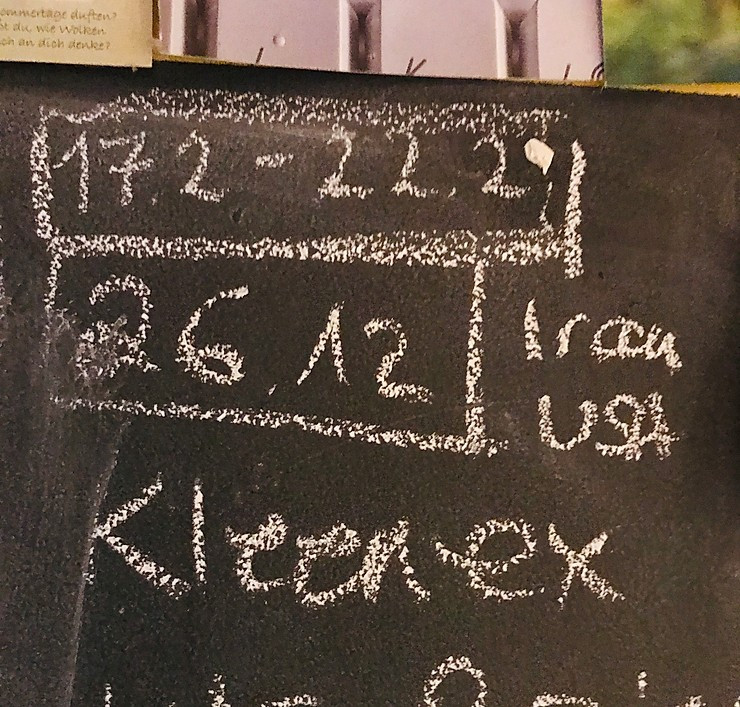 ommertage duften?
st du, wie Wolken
ch an dich denke?
17.2 - 22.2.
26.12
Iran
USA
Kleenex